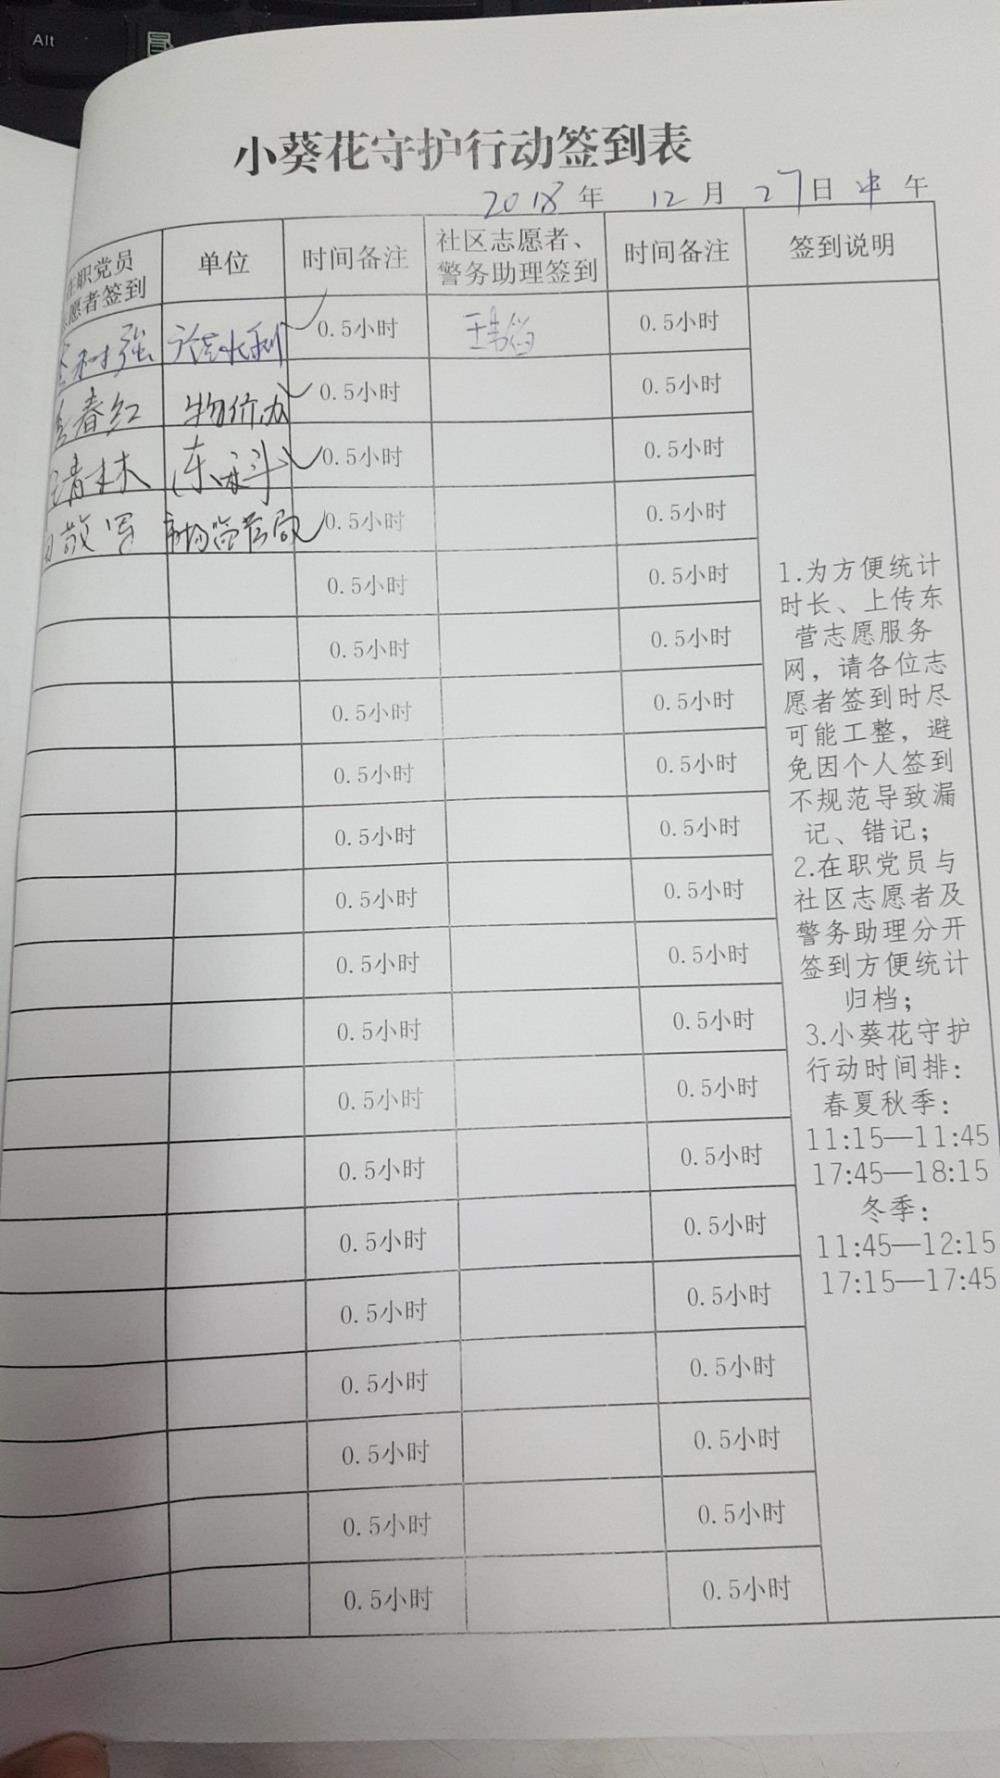 Alt
小葵花守护行动签到表
2018年 12月 27日 中午
在职党员 志愿者签到 单位 时间备注 社区志愿者、警务助理签到 时间备注 签到说明
0.5小时 0.5小时
春红 物价办 0.5小时 0.5小时
0.5小时 0.5小时
市场监管局 0.5小时 0.5小时
0.5小时 0.5小时
0.5小时 0.5小时
0.5小时 0.5小时
0.5小时 0.5小时
0.5小时 0.5小时
0.5小时 0.5小时
0.5小时 0.5小时
0.5小时 0.5小时
0.5小时 0.5小时
0.5小时 0.5小时
0.5小时 0.5小时
0.5小时 0.5小时
0.5小时 0.5小时
0.5小时 0.5小时
0.5小时 0.5小时
0.5小时 0.5小时
1.为方便统计
时长、上传东
营志愿服务
网，请各位志
愿者签到时尽
可能工整，避
免因个人签到
不规范导致漏
记、错记；
2.在职党员与
社区志愿者及
警务助理分开
签到方便统计
归档；
3.小葵花守护
行动时间排：
春夏秋季：
11:15—11:45
17:45—18:15
冬季：
11:45—12:15
17:15—17:45